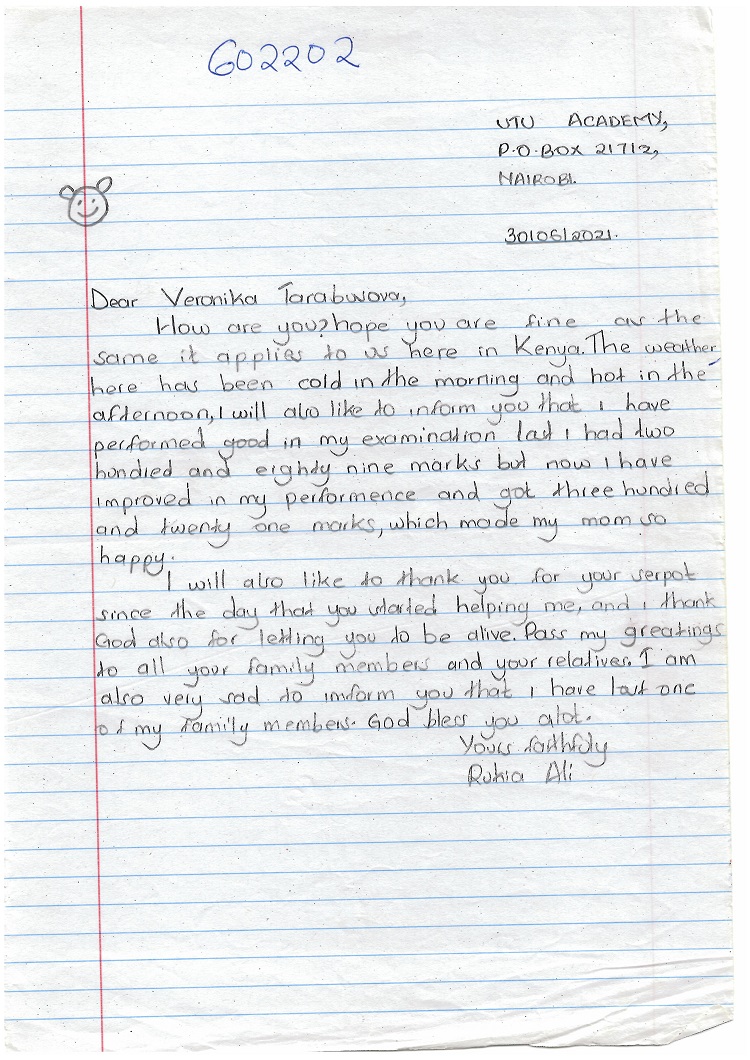 G02202
UTU ACADEMY,
P.O.BOX 21712,
NAIROBI.
30/06/2021.
Dear Veronika Tarabuvova,
How are you? hope you are fine as the
same it applies to us here in Kenya. The weather
here has been cold in the morning and hot in the
afternoon, I will also like to inform you that i have
performed good in my examination last i had two
hundred and eighty nine marks but now i have
improved in my performence and got three hundred
and twenty one marks, which made my mom so
happy.
I will also like to thank you for your serpot
since the day that you started helping me, and i thank
God also for letting you to be alive. Pass my greatings
to all your family members and your relatives. I am
also very sad to imform you that i have lost one
of my family members. God bless you alot.
Yours faithfuly
Rukia Ali